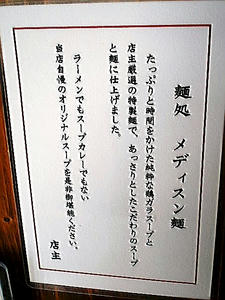 麺処 メディスン麺
たっぷりと時間をかけた純粋な鶏ガラスープと
店主厳選の特製麺で、あっさりとしたこだわりのスープ
と麺に仕上げました。
ラーメンでもスープカレーでもない
当店自慢のオリジナルスープを是非御堪能ください。
店主